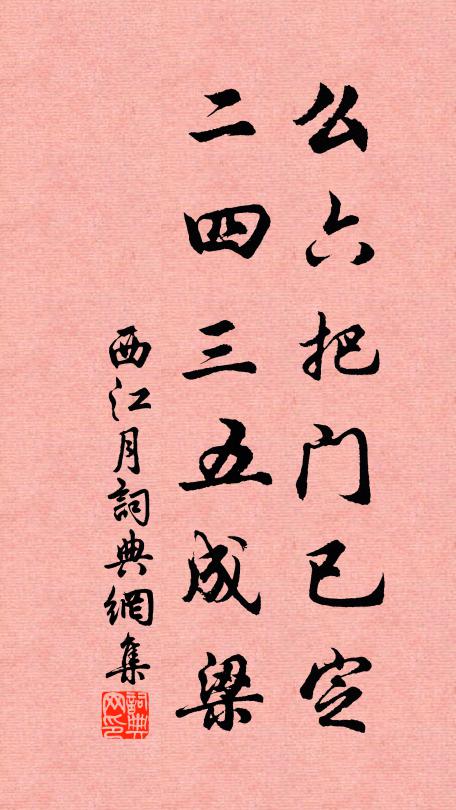 幺六把门已定
二四三五成梁
西江月詞典網集
詞典网印